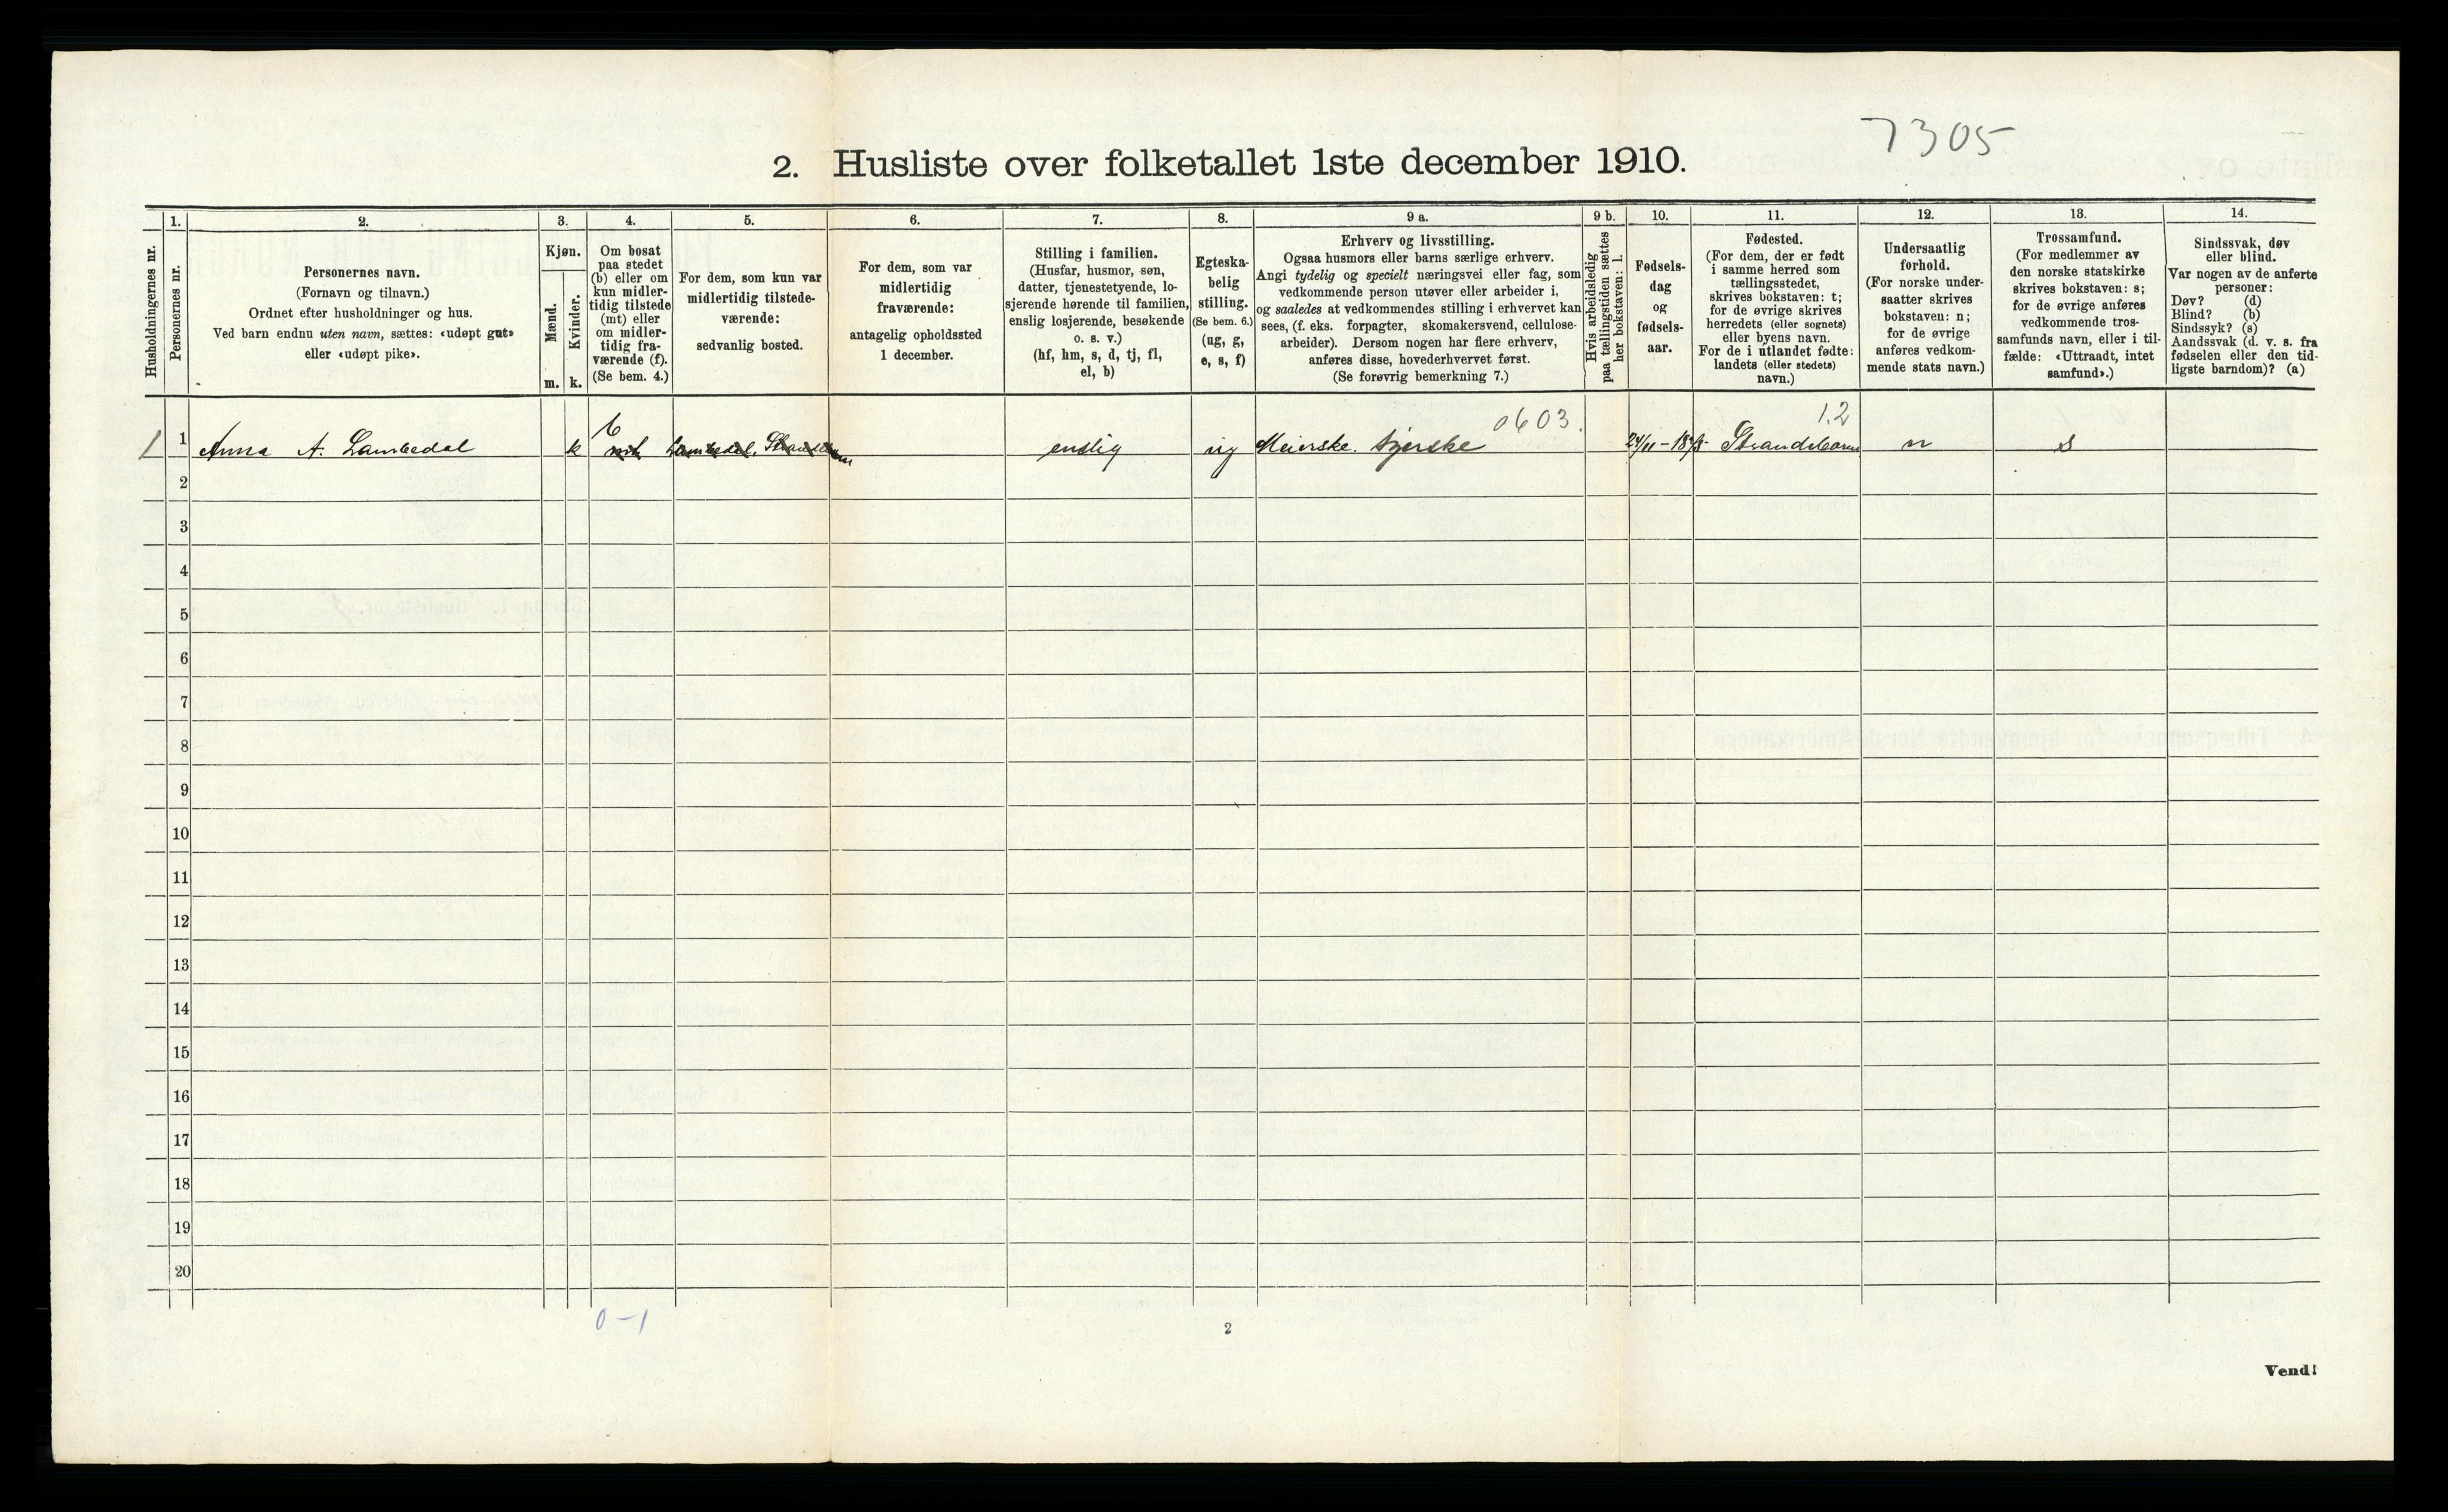 7305
2. Husliste over folketallet 1ste december 1910.
1. 2. 3. 4. 5. 6. 7. 8. 9 a. 9 b. 10. 11. 12. 13. 14.
Husholdningernes nr.
Personernes nr.
Personernes navn.
(Fornavn og tilnavn.)
Ordnet efter husholdninger og hus.
Ved barn endnu uten navn, sættes: «udøpt gut»
eller «udøpt pike».
Kjøn.
Mænd.
Kvinder.
m. k.
Om bosat
paa stedet
(b) eller om
kun midler-
tidig tilstede
(mt) eller
om midler-
tidig fra-
værende (f).
(Se bem. 4.)
For dem, som kun var
midlertidig tilstede-
værende:
sedvanlig bosted.
For dem, som var
midlertidig
fraværende:
antagelig opholdssted
1 december.
Stilling i familien.
(Husfar, husmor, søn,
datter, tjenestetyende, lo-
sjerende hørende til familien,
enslig losjerende, besøkende
o. s. v.)
(hf, hm, s, d, tj, fl,
el, b)
Egteska-
belig
stilling.
(Se bem. 6.)
(ug, g,
e, s, f)
Erhverv og livsstilling.
Ogsaa husmors eller barns særlige erhverv.
Angi tydelig og specielt næringsvei eller fag, som
vedkommende person utøver eller arbeider i,
og saaledes at vedkommendes stilling i erhvervet kan
sees, (f. eks. forpagter, skomakersvend, cellulose-
arbeider). Dersom nogen har flere erhverv,
anføres disse, hovederhvervet først.
(Se forøvrig bemerkning 7.)
Hvis arbeidsledig
paa tællingstiden sættes
her bokstaven: l.
Fødsels-
dag
og
fødsels-
aar.
Fødested.
(For dem, der er født
i samme herred som
tællingsstedet,
skrives bokstaven: t;
for de øvrige skrives
herredets (eller sognets)
eller byens navn.
For de i utlandet fødte:
landets (eller stedets)
navn.)
Undersaatlig
forhold.
(For norske under-
saatter skrives
bokstaven: n;
for de øvrige
anføres vedkom-
mende stats navn.)
Trossamfund.
(For medlemmer av
den norske statskirke
skrives bokstaven: s;
for de øvrige anføres
vedkommende tros-
samfunds navn, eller i til-
fælde: «Uttraadt, intet
samfund».)
Sindssvak, døv
eller blind.
Var nogen av de anførte
personer:
Døv? (d)
Blind? (b)
Sindssyk? (s)
Aandssvak (d. v. s. fra
fødselen eller den tid-
ligste barndom)? (a)
b 0603. 12
1 1 Anna A. Lambedal k mt Lambedal, Strandebarm enslig ug Meierske. Strandebarm n s
2
3
4
5
6
7
8
9
10
11
12
13
14
15
16
17
18
19
20
0-1
2
Vend!